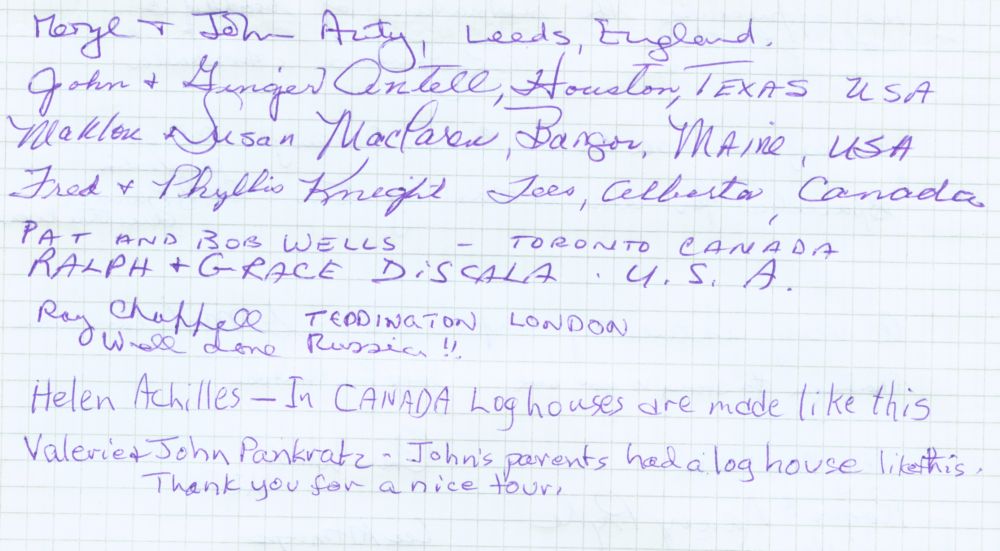 Meryl + John Auty, Leeds, England.
John + Ginger Antell, Houston, TEXAS USA
Susan MacLaren, Bangor, MAine, USA
Fred + Phyllis Knight Tees, Alberta, Canada
PAT AND BOB WELLS - TORONTO CANADA
RALPH + GRACE DiSCALA . U. S. A.
Ray Chappell TEDDINGTON LONDON
Well done Russia!!
Helen Achilles - In CANADA Log houses are made like this
Valerie & John Pankratz - John's parents had a log house like this.
Thank you for a nice tour.